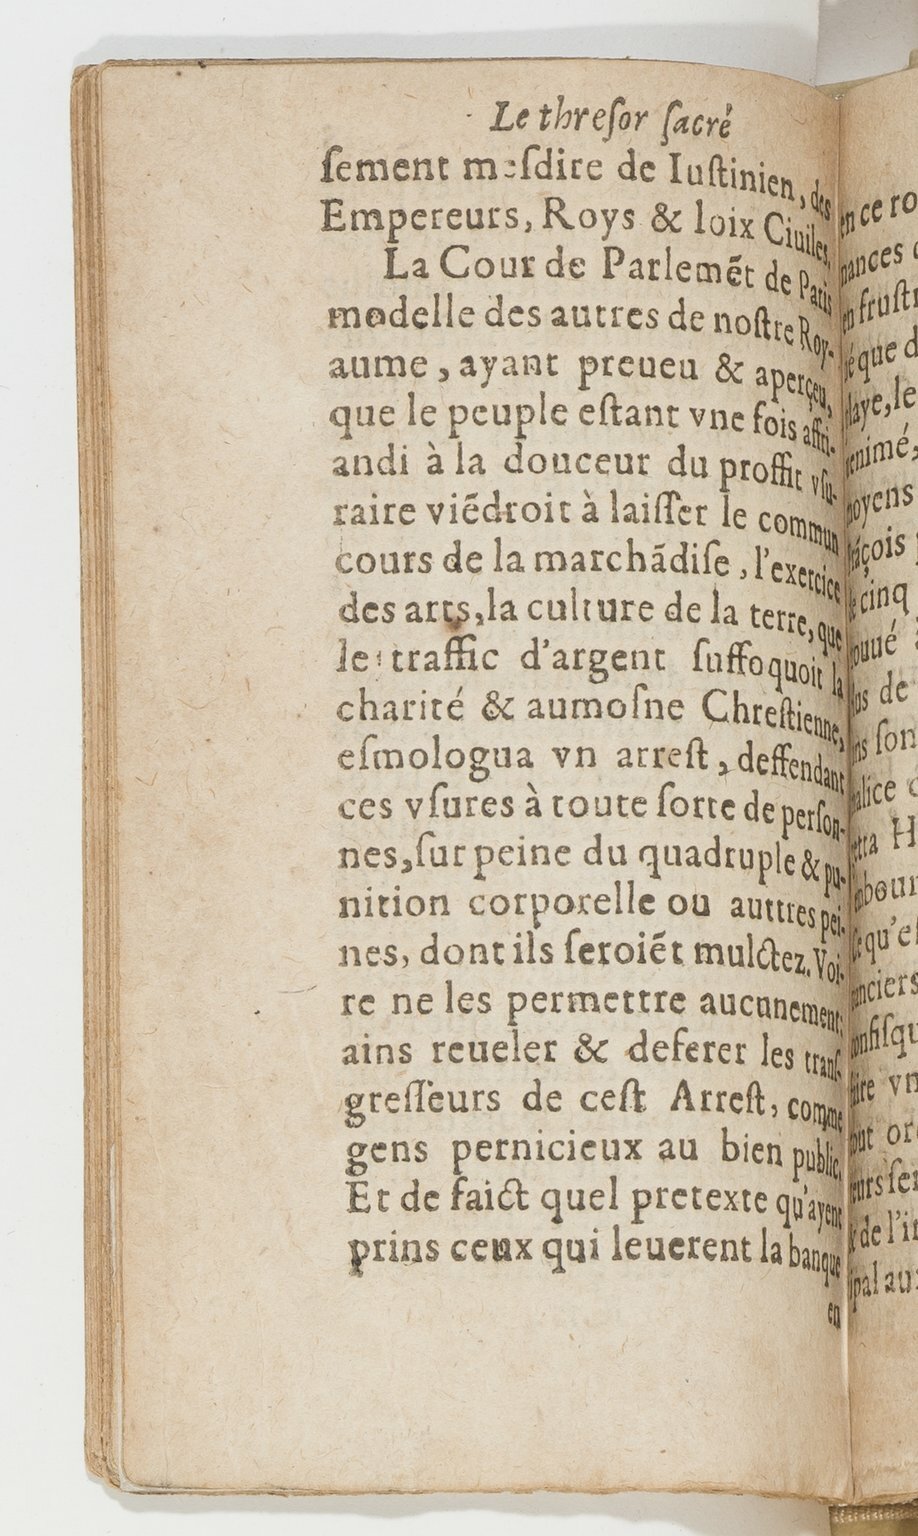 Le threſor ſacré
ſement meſdire de Iuſtinien, des
Empereurs, Roys & loix Ciuiles,
La Cour de Parlemẽt de Paris
modelle des autres de noſtre Roy-
aume, ayant preueu & aperçeu,
que le peuple eſtant vne fois affri-
andi à la douceur du proffit vſu-
raire viẽdroit à laiſſer le commun
cours de la marchãdiſe, l'exercice
des arts, la culture de la terre, que
le traffic d'argent ſuffoquoit la
charité & aumoſne Chreſtienne,
eſmologua vn arreſt, deffendant
ces vſures à toute ſorte de perſon-
nes, ſur peine du quadruple & pu-
nition corporelle ou auttres pei-
nes, dont ils ſeroiẽt mulctez. Voi-
re ne les permettre aucunement,
ains reueler & deferer les tranſ-
greſſeurs de ceſt Arreſt, comme
gens pernicieux au bien public,
Et de faict quel pretexte qu'ayent
prins ceux qui leuerent la banque
en
en ce ro
nances
fruſt
que d
le
nimé,
oyens
çois
cinq
oué
de
ſon
lice
H
bour
qu'e
nciers
nfiſqu
vn
or
de l'i
pal au